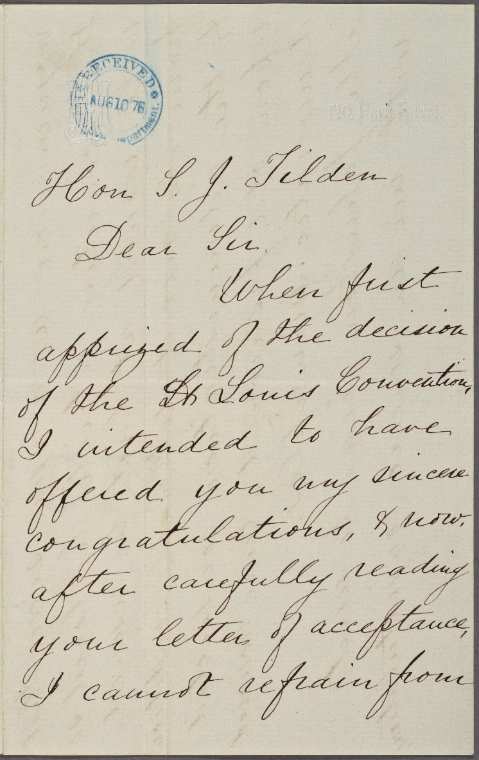 RECEIVED
AUG 10 76
Department.
Hon S. J. Tilden
Dear Sir
When first
apprized of the decision
of the St Louis Convention,
I intended to have
offered you my sincere
congratulations, & now,
after carefully reading
your letter of acceptance,
I cannot refrain from